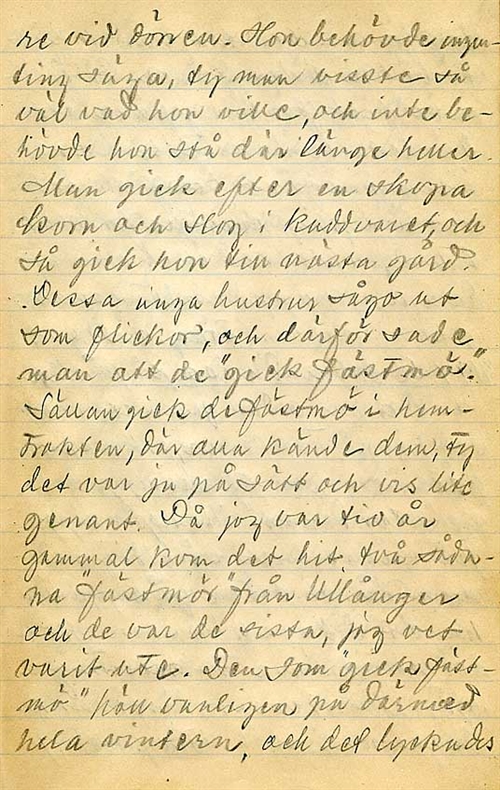 re vid dörren. Hon behövde ingen-
ting säga, ty man visste så
väl vad hon ville, och inte be-
hövde hon stå där länge heller.
Man gick efter en skopa
korn och slog i kuddvaret, och
så gick hon till nästa gård.
Dessa unga hustrur sågo ut
som flickor, och därför sade
man att de "gick fästmö".
Sällan gick de fästmö i hem-
trakten, där alla kände dem, ty
det var ju på sätt och vis lite
genant. Då jag var tio år
gammal kom det hit två såda-
na "fästmör" från Ullånger
och de var de sista, jag vet
varit ute. Den som "gick fäst-
mö" höll vanligen på därmed
hela vintern, och det lyckades